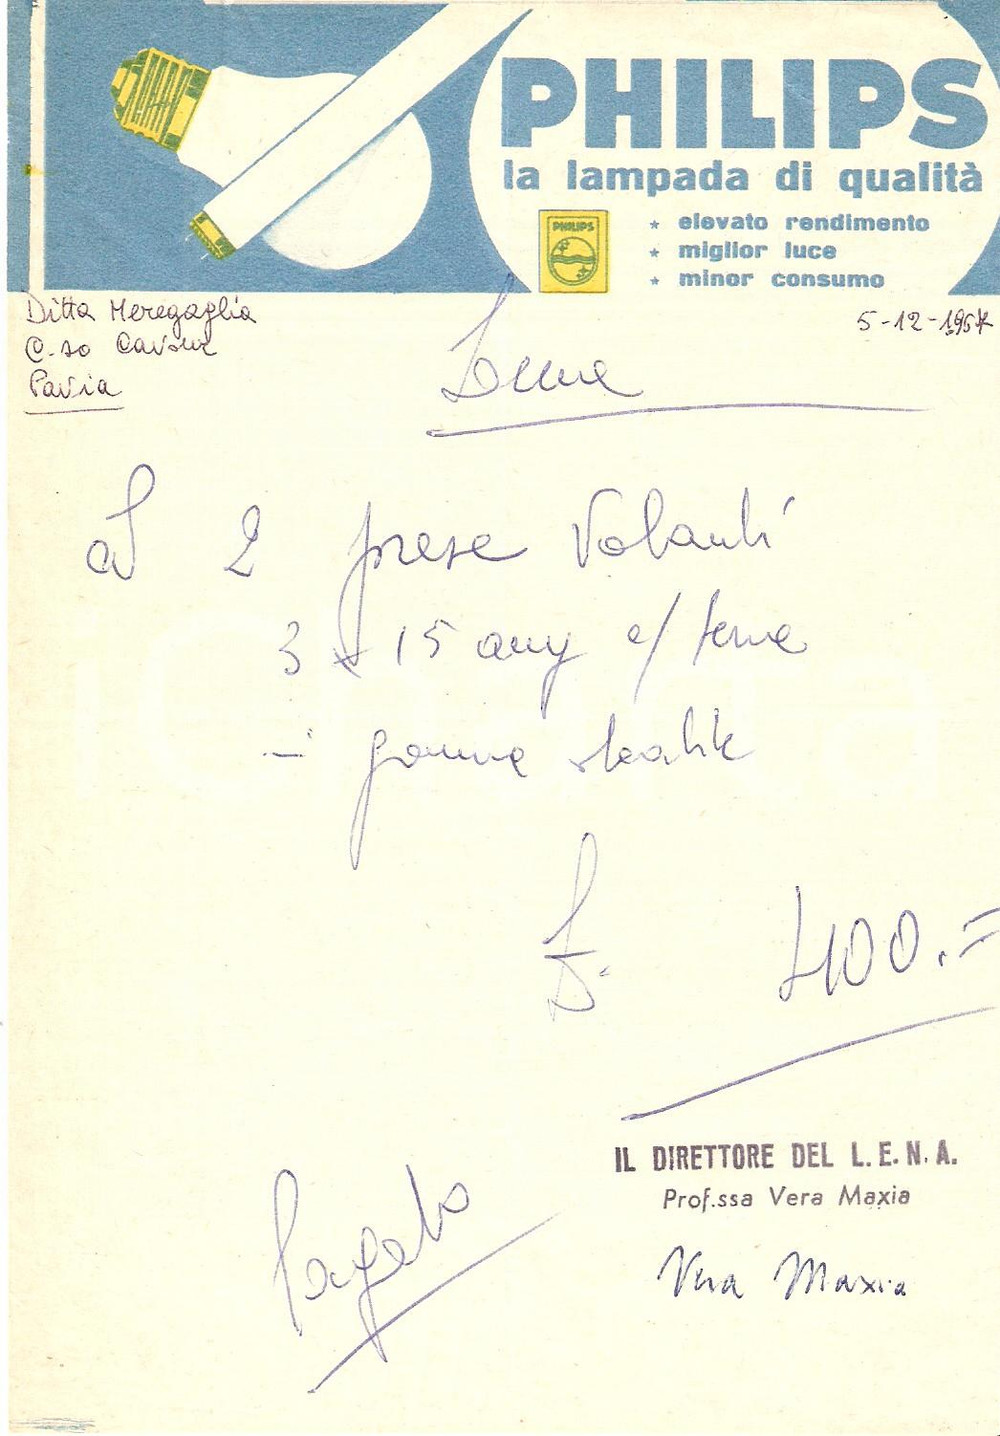 PHILIPS
la lampada di qualità
PHILIPS
* elevato rendimento
* miglior luce
* minor consumo
Ditta Meregaglia
C.so Cavour
Pavia
5-12-1967
2 prese volanti
3 x 15 c/ terra
- gomma
£. 400.=
IL DIRETTORE DEL L.E.N.A.
Prof.ssa Vera Maxia
Vera Maxia
Pagato